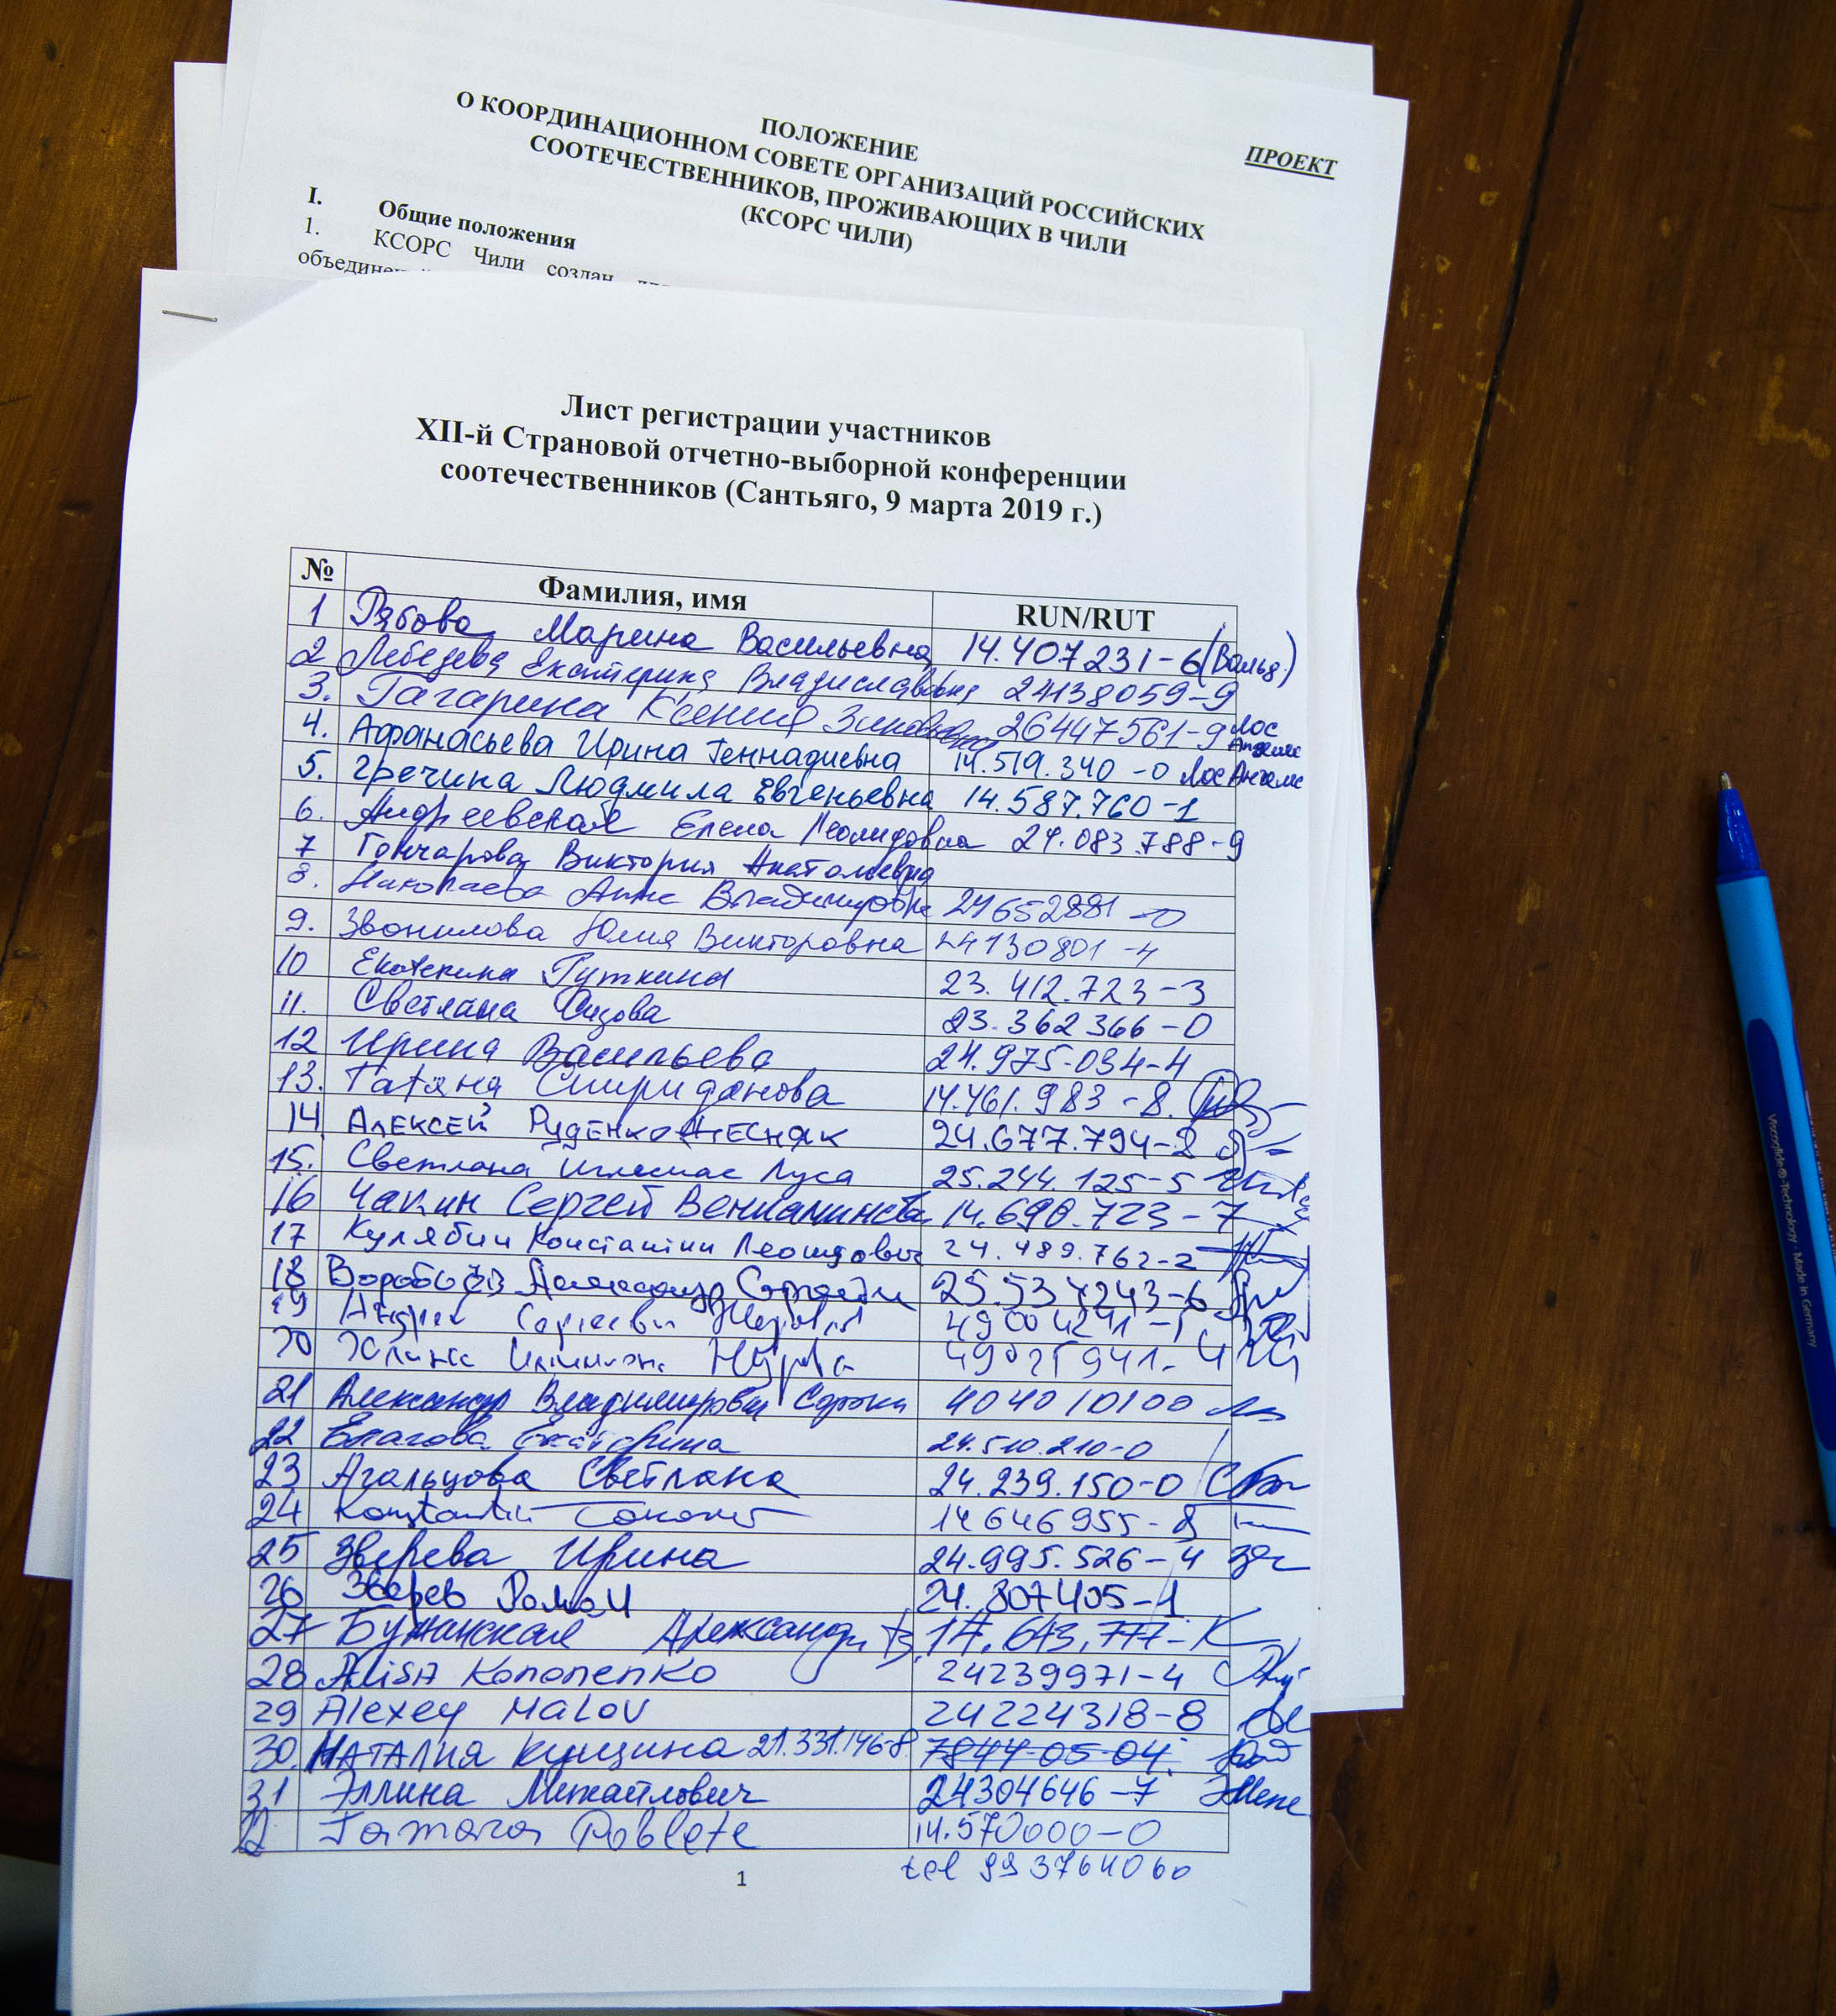 ПРОЕКТ
ПОЛОЖЕНИЕ
О КООРДИНАЦИОННОМ СОВЕТЕ ОРГАНИЗАЦИЙ РОССИЙСКИХ
СООТЕЧЕСТВЕННИКОВ, ПРОЖИВАЮЩИХ В ЧИЛИ
(КСОРС ЧИЛИ)
I. Общие положения
1. КСОРС Чили создан
Лист регистрации участников
XII-й Страновой отчетно-выборной конференции
соотечественников (Сантьяго, 9 марта 2019 г.)
№ Фамилия, имя RUN/RUT
1 Рябова Марина Васильевна 14.407231-6
2 Лебедева Екатерина Владиславовна 24138059-9
3. Гагарина Ксения 26447561-9 Лос Анжелес
4. Афанасьева Ирина Геннадиевна 14.519.340-0 Лос Анжелес
5. Гречина Людмила Евгеньевна 14.587.760-1
6. Андреевская Елена Леонидовна 24.083.788-9
7 Гончарова Виктория Анатольевна
8. Николаева Анна Владимировна 24652881-0
9. Звонилова Юлия Викторовна 24130801-4
10 Екатерина Гуткина 23.412.723-3
11. Светлана Сизова 23.362366-0
12 Ирина Васильева 24.975.034-4
13. Татяна Спиридонова 14.461.983-8.
14 АЛЕКСЕЙ РУДЕНКО 24.677.794-2
15. Светлана Иглесиас Луса 25.244.125-5
16 Чакин Сергей 14.690.723-7
17 Кулябин Константин Леонидович 24.489.762-2
18 Воробьёв Александр
19 Андрей
20
21 Александр Владимирович 4040 10100
22 Екатерина 24.510.210-0
23 Агальцова Светлана 24.239.150-0
24 Konstantin 14646955-8
25 Зверева Ирина 24.995.526-4
26 Зверев Роман 24.807405-1
27 Бужанская Александра В. 14.643.777-K
28 Alisa Kononenko 24239971-4
29 Alexey Malov 24224318-8
30. НАТАЛИЯ Кущина 21.331.146-8 7844-05-04.
31 Эллина Михайлович 24304646-7
32 Tamara Poblete 14.570000-0
tel 993764060
1
Viscoglide®-Technology · Made in Germany